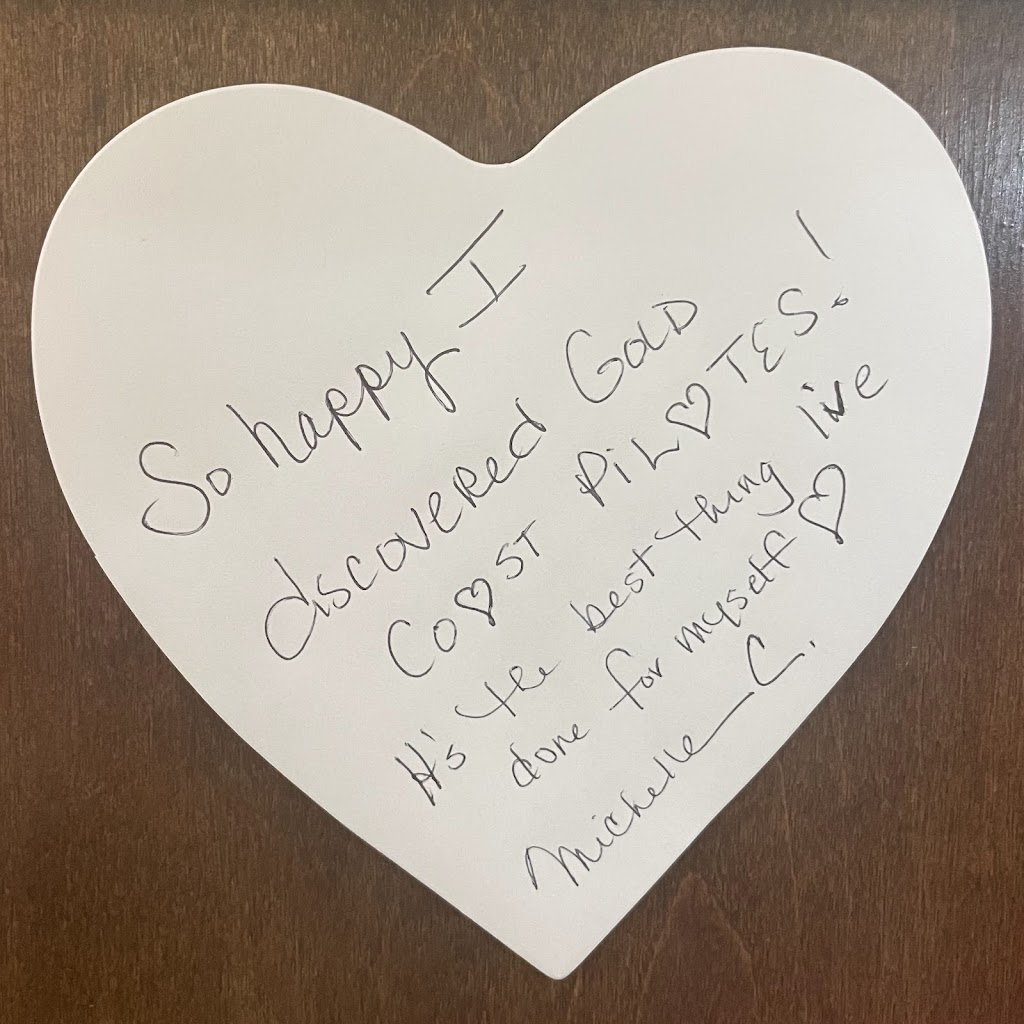 So happy I
discovered GOLD
CO♡ST PiL♡TES!
It's the best thing live
done for myself ♡
Michelle C.